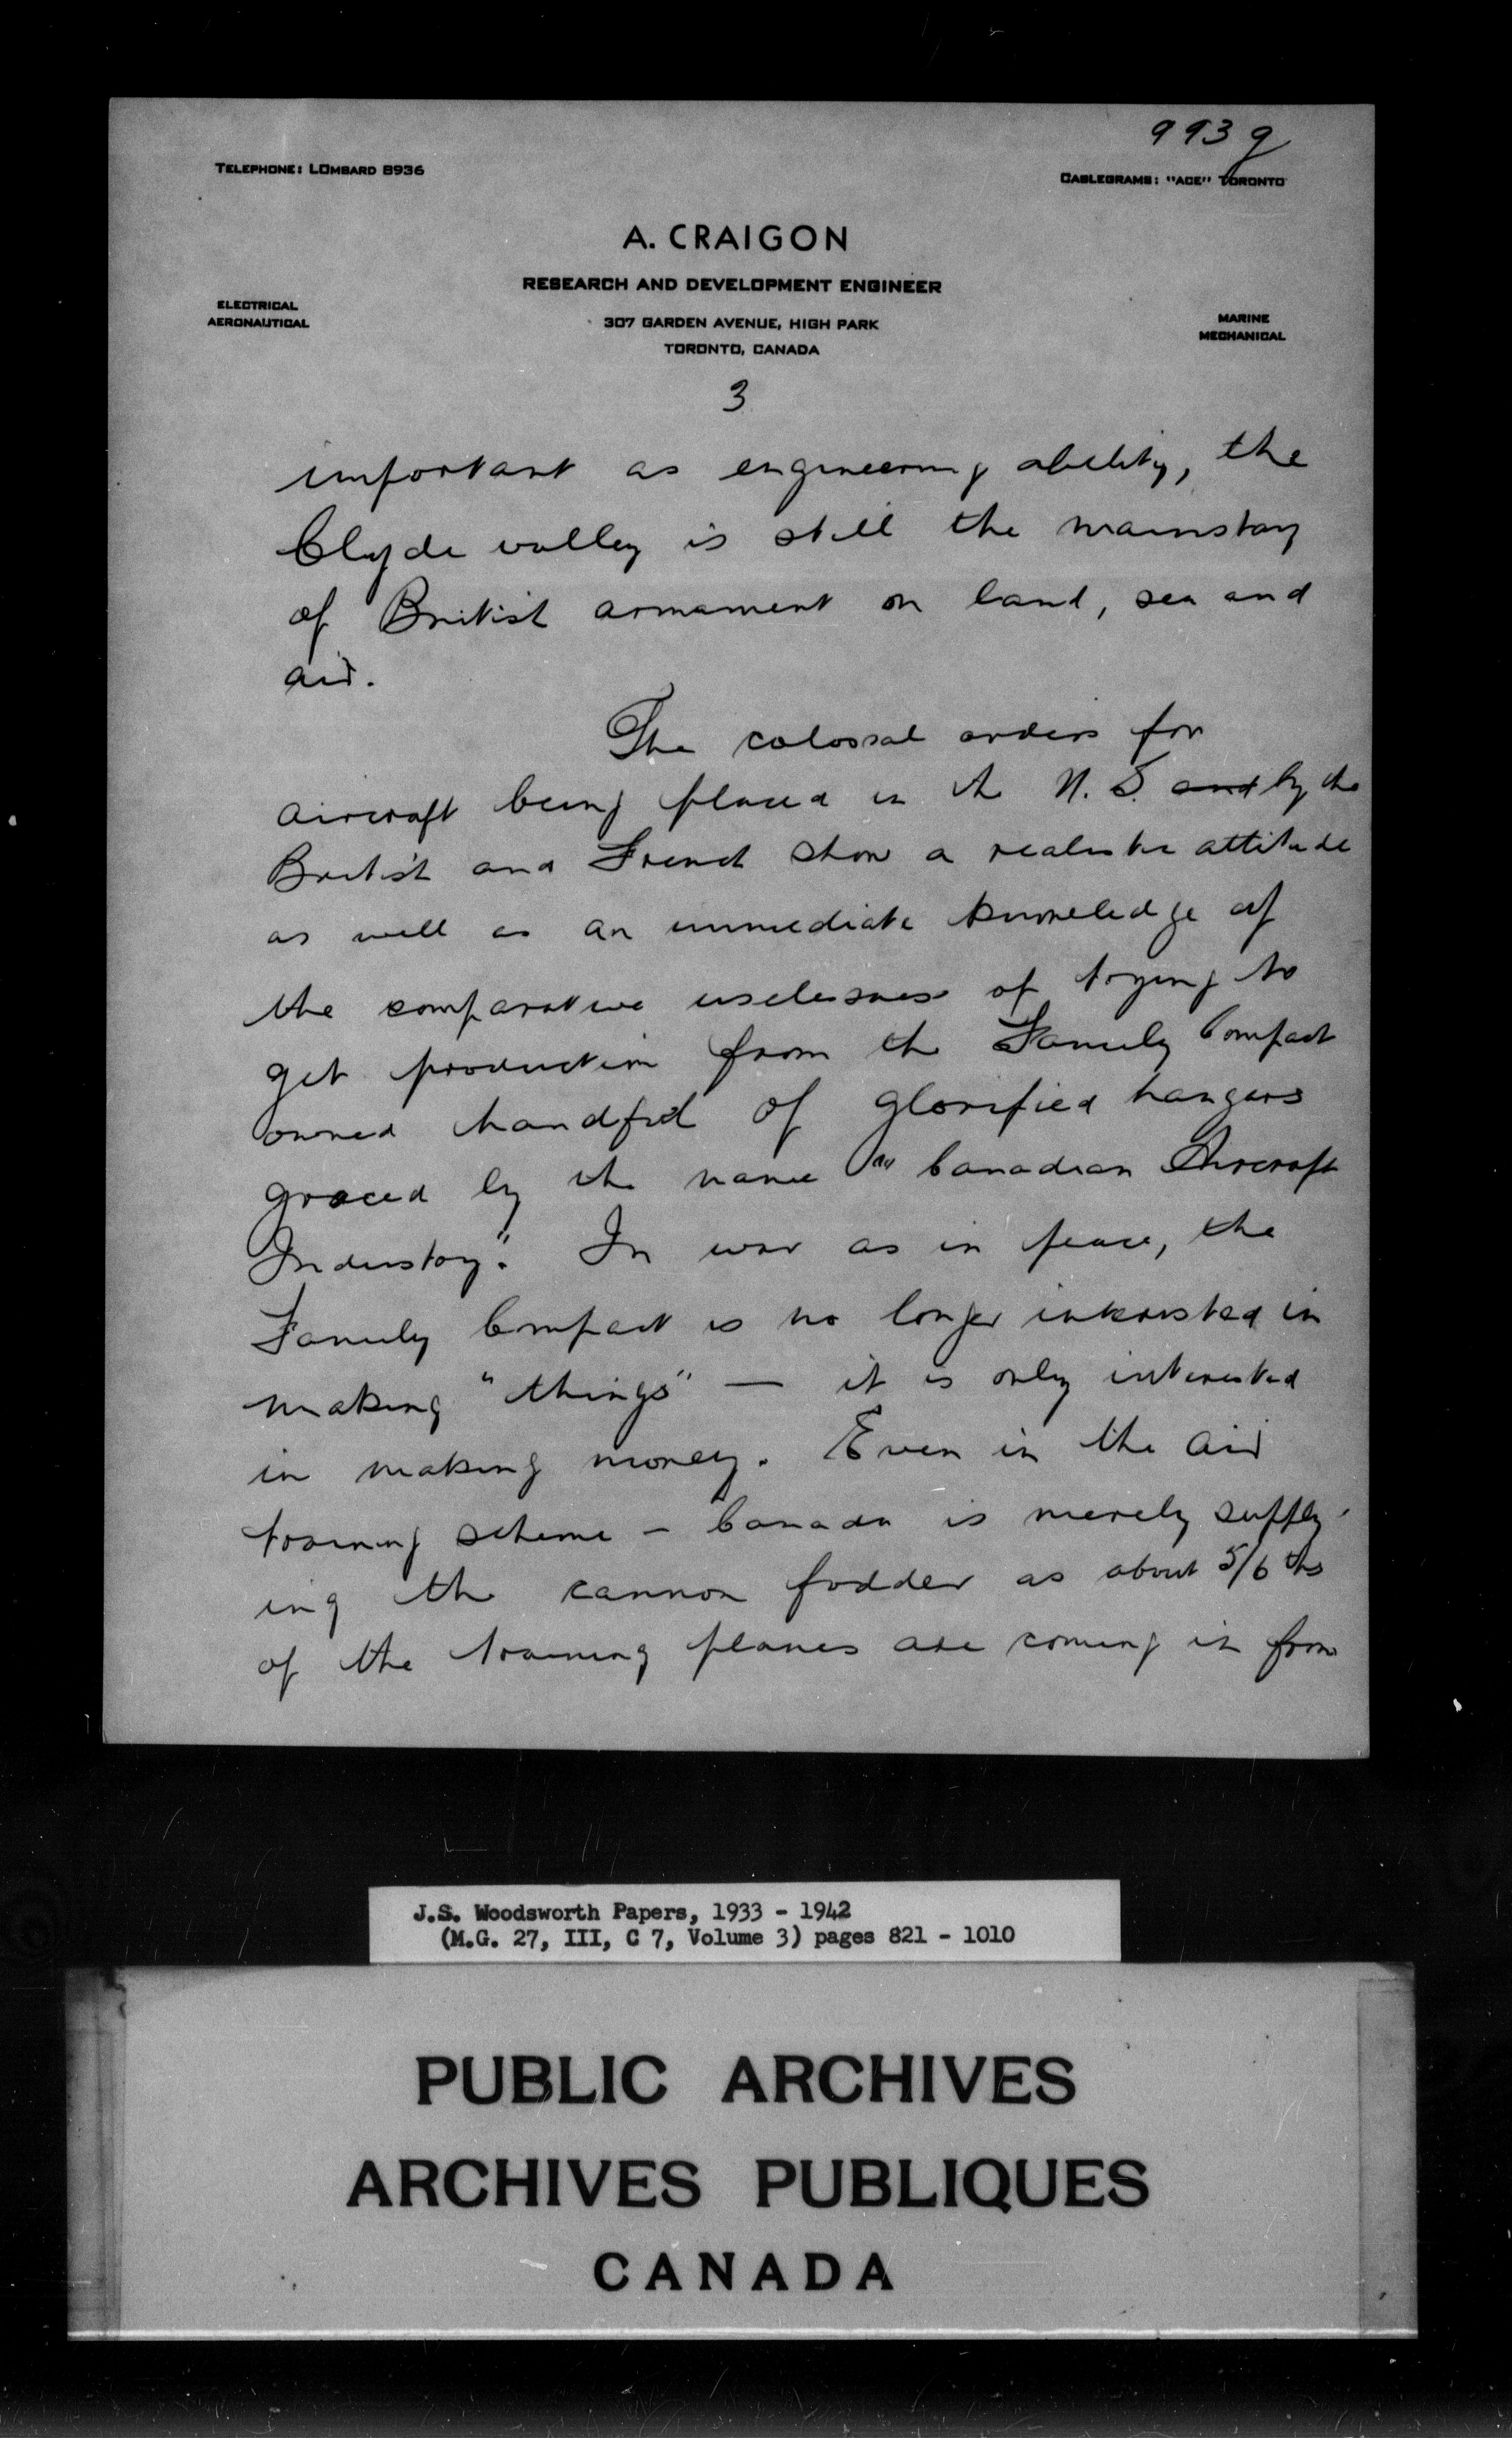 993 g
TELEPHONE: LOMBARD 8936
CABLEGRAMS: "ACE" TORONTO
A. CRAIGON
RESEARCH AND DEVELOPMENT ENGINEER
ELECTRICAL
AERONAUTICAL
307 GARDEN AVENUE, HIGH PARK
TORONTO, CANADA
MARINE
MECHANICAL
3
important as engineering ability, the
Clyde valley is still the mainstay
of British armament on land, sea and
air.
The colossal orders for
aircraft being placed in the U.S. and by the
British and French show a realistic attitude
as well as an immediate knowledge of
the comparative uselessness of trying to
get production from the Family Compact
owned handful of glorified hangars
graced by the name "Canadian Aircraft
Industry." In war as in peace, the
Family Compact is no longer interested in
making "things" — it is only interested
in making money. Even in the air
training scheme - Canada is merely supply-
ing the cannon fodder as about 5/6 ths
of the training planes are coming in from
J.S. Woodsworth Papers, 1933 - 1942
(M.G. 27, III, C 7, Volume 3) pages 821 - 1010
PUBLIC ARCHIVES
ARCHIVES PUBLIQUES
CANADA